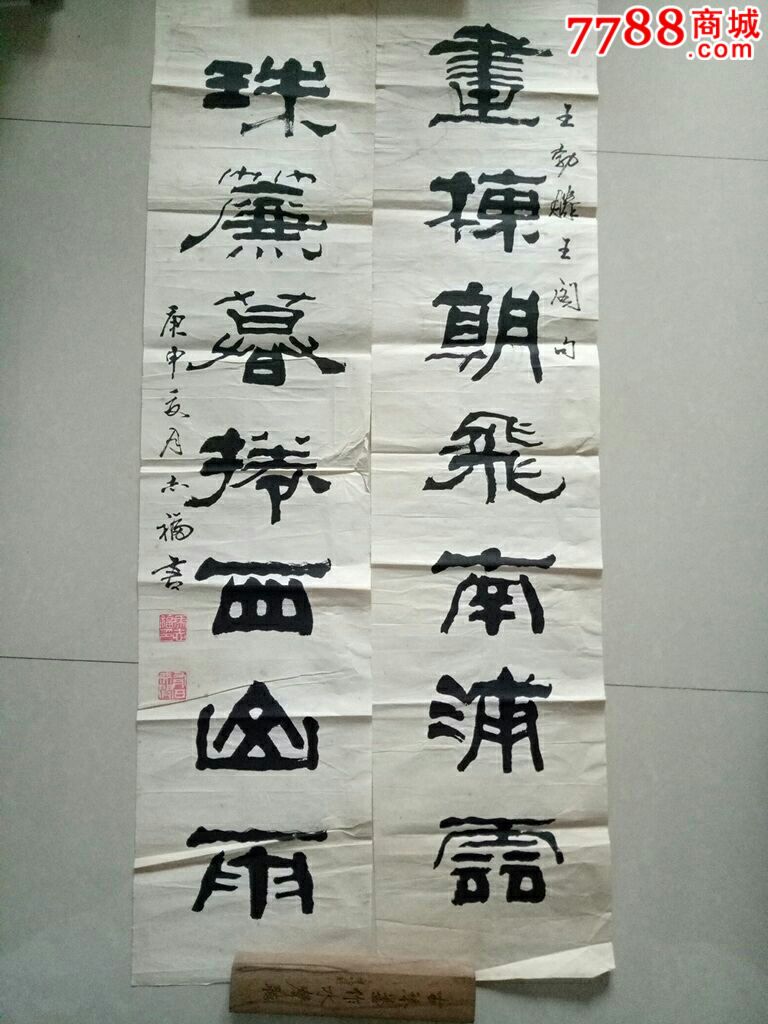 7788商城
.com
畫棟朝飛南浦雲
王勃滕王阁句
珠簾暮捲西山雨
庚申夏月志福書